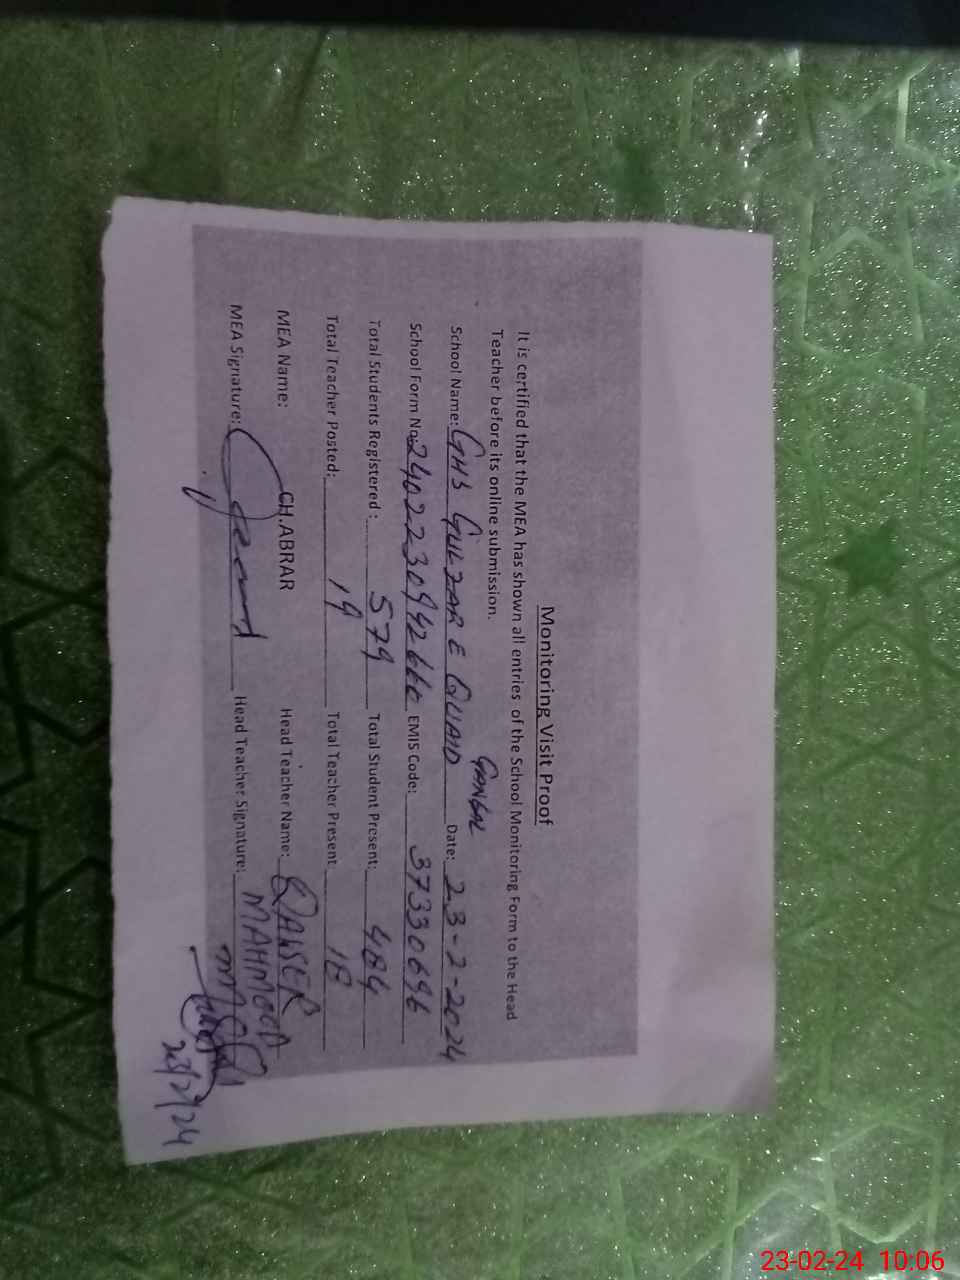 Monitoring Visit Proof
It is certified that the MEA has shown all entries of the School Monitoring Form to the Head
Teacher before its online submission.
GANGAL
School Name: GHS GULZAR E QUAID Date: 23-2-2024
School Form No: EMIS Code: 37330696
Total Students Registered : 579 Total Student Present: 484
Total Teacher Posted: 19 Total Teacher Present 18
MEA Name: CH.ABRAR Head Teacher Name: QAISER
MAHMOOD
MEA Signature: Head Teacher Signature:
23/2/24
23-02-24 10:06